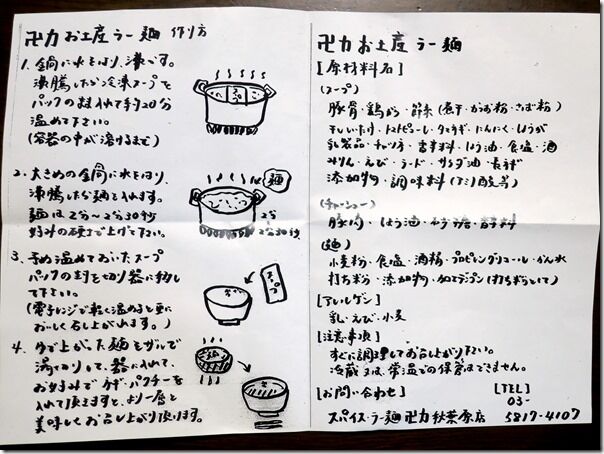 卍力 お土産ラー麺 作り方
1. 鍋に水をはり、沸す。
沸騰したら冷凍スープを
パックのまま入れて約20分
温めて下さい。
(容器の中が溶けるまで)
2. 大きめの鍋に水をはり、
沸騰したら麺を入れます。
麺は2分〜2分30秒
好みの硬さで上げて下さい。
麺
2分
2分30秒
3. 予め温めておいたスープ
パックの封を切り器に移し
て下さい。
(電子レンジで軽く温めると更に
おいしく召し上がれます。)
スープ
4. ゆで上がった麺をザルで
湯切りして、器に入れて、
お好みでネギ・パクチーを
入れて頂きますと、より一層と
美味しくお召し上がり頂けます。
卍力 お土産 ラー麺
[原材料名]
(スープ)
豚骨・鶏がら・節系(煮干・かつお粉・さば粉)
干しいたけ・トマトピューレ・タマネギ・にんにく・しょうが
乳製品・チャツネ・香辛料・しょう油・食塩・酒
みりん・えび・ラード・サラダ油・長ネギ
添加物・調味料(アミノ酸等)
(チャーシュー)
豚肉・しょう油・砂糖・香辛料
(麺)
小麦粉・食塩・酒精・プロピレングリコール・かん水
打ち粉・添加物・加工デンプン(打ち粉として)
[アレルゲン]
乳・えび・小麦
[注意事項]
すぐに調理してお召し上がり下さい。
冷蔵又は、常温での保管はできません。
[お問い合わせ]
[TEL]
03-
スパイス・ラー麺 卍力 秋葉原店 5817-4107